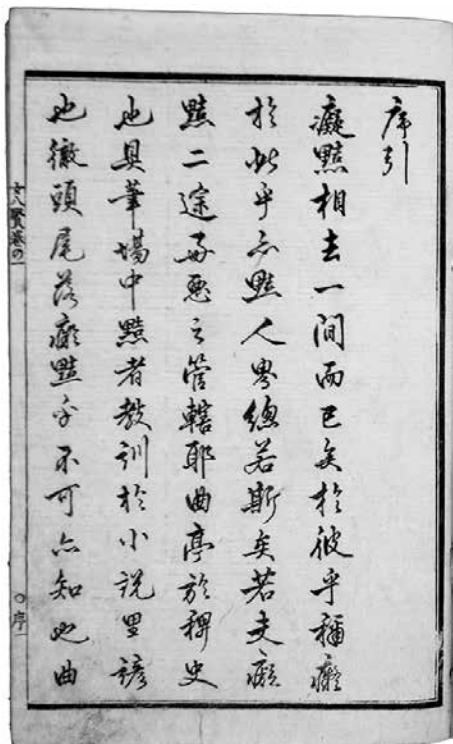 序引
癡黠相去一間而已矣於彼乎稱癡
於此乎示黠人畢總若斯矣若夫癡
黠二途好惡之管轄耶曲亭於稗史
也具筆場中黠者教訓於小說里諺
也徹頭尾落癡黠乎不可亦知也曲
女八賢卷の一
〇序一